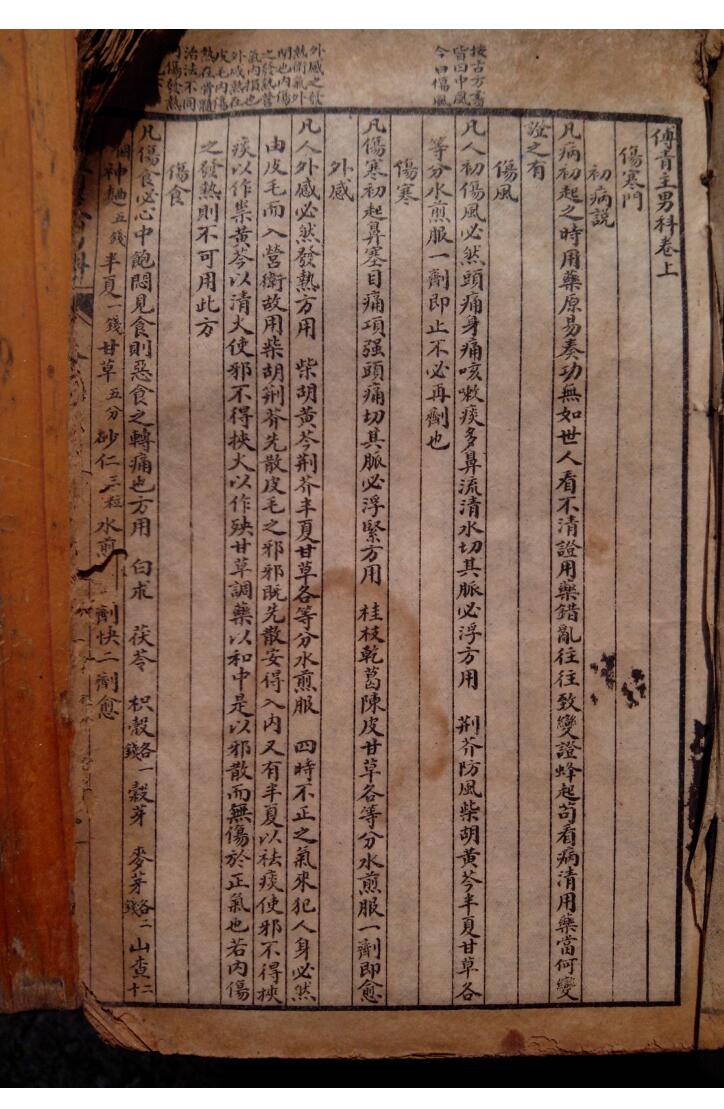 按古方書
皆曰中風
今曰傷風
外感之發
熱衛氣外
閉也內傷
之發熱營
氣內損也
外感熱在
皮毛內傷
熱在骨髓
治法不同
傷發熱
傅青主男科卷上
傷寒門
初病說
凡病初起之時用藥原易奏功無如世人看不清證用藥錯亂往往致變證蜂起苟看病清用藥當何變
證之有
傷風
凡人初傷風必然頭痛身痛咳嗽痰多鼻流清水切其脈必浮方用 荆芥防風柴胡黃芩半夏甘草各
等分水煎服一劑即止不必再劑也
傷寒
凡傷寒初起鼻塞目痛項强頭痛切其脈必浮緊方用 桂枝乾葛陳皮甘草各等分水煎服一劑即愈
外感
凡人外感必然發熱方用 柴胡黃芩荆芥半夏甘草各等分水煎服 四時不正之氣來犯人身必然
由皮毛而入營衛故用柴胡荆芥先散皮毛之邪邪既先散安得入內又有半夏以祛痰使邪不得挾
痰以作祟黃芩以清火使邪不得挾火以作殃甘草調藥以和中是以邪散而無傷於正氣也若內傷
之發熱則不可用此方
傷食
凡傷食必心中飽悶見食則惡食之轉痛也方用 白朮 茯苓 枳殼各一錢 穀芽 麥芽各二錢 山查二十
個神麯五錢半夏一錢甘草五分砂仁三粒水煎 劑快二劑愈